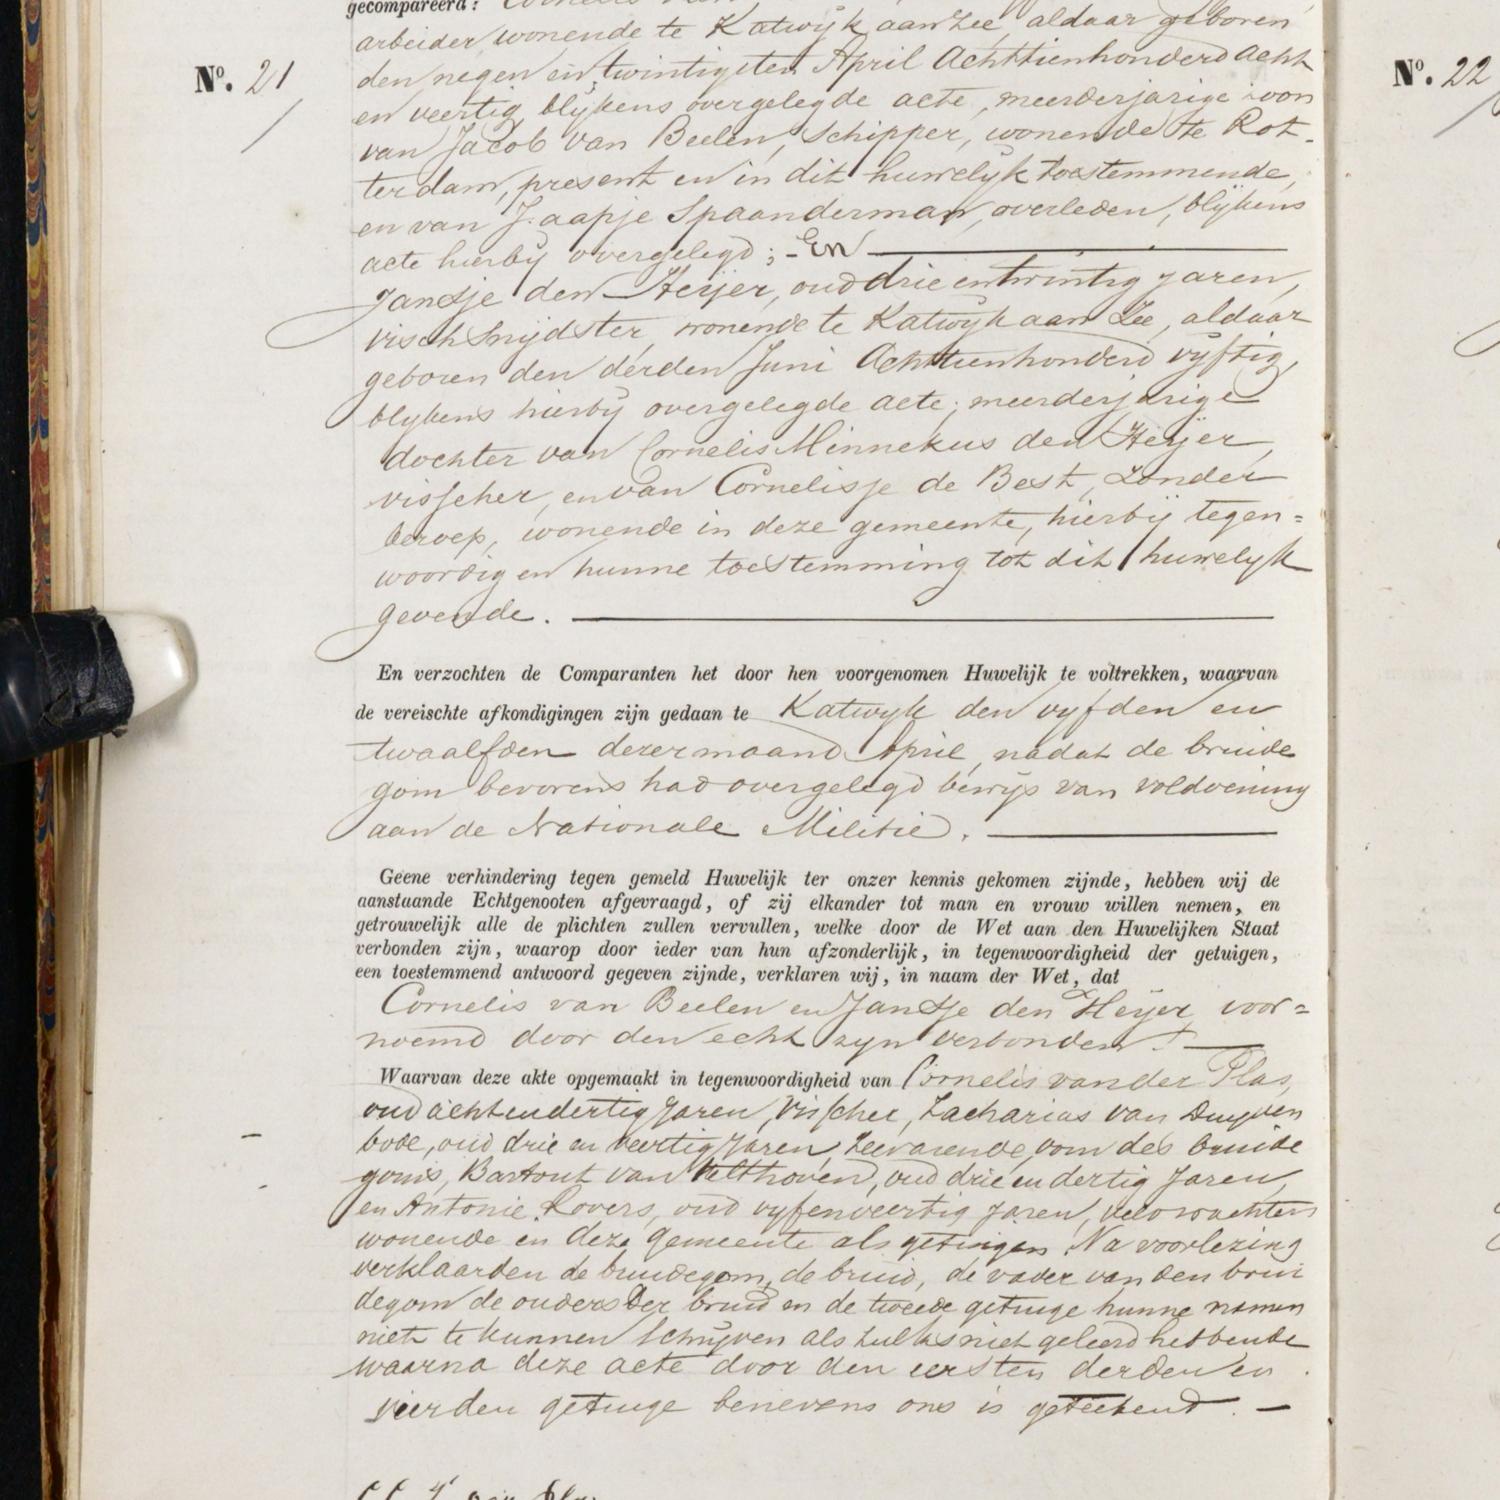 gecompareerd: Cornelis van
arbeider, wonende te Katwijk aan Zee, aldaar geboren
den negen en twintigsten April Achttienhonderd acht
Nº. 21
en veertig, blijkens overgelegde acte, meerderjarige zoon
van Jacob van Beelen, Schipper, wonende te Rot-
terdam, present en in dit huwelijk toestemmende,
en van Jaapje Spaanderman, overleden, blijkens
acte hierbij overgelegd; - En
Jansje den Heijer, oud drie en twintig jaren,
vischsnijdster, wonende te Katwijk aan Zee, aldaar
geboren den derden Juni Achttienhonderd vijftig,
blykens hierbij overgelegde acte; meerderjarige
dochter van Cornelis Minnekus den Heijer,
visscher, en van Cornelisje de Best, zonder
beroep, wonende in deze gemeente, hierbij tegen=
woordig en hunne toestemming tot dit huwelyk
gevende.
En verzochten de Comparanten het door hen voorgenomen Huwelijk te voltrekken, waarvan
de vereischte afkondigingen zijn gedaan te Katwyk den vyfden en
twaalfden dezer maand April, nadat de bruide
gom bevorens had overgelegd bewijs van voldoening
aan de Nationale Militie.
Geene verhindering tegen gemeld Huwelijk ter onzer kennis gekomen zijnde, hebben wij de
aanstaande Echtgenooten afgevraagd, of zij elkander tot man en vrouw willen nemen, en
getrouwelijk alle de plichten zullen vervullen, welke door de Wet aan den Huwelijken Staat
verbonden zijn, waarop door ieder van hun afzonderlijk, in tegenwoordigheid der getuigen,
een toestemmend antwoord gegeven zijnde, verklaren wij, in naam der Wet, dat
Cornelis van Beelen en Jansje den Heijer voor=
noemd door den echt zyn verbonden!
Waarvan deze akte opgemaakt in tegenwoordigheid van Cornelis van der Plas,
oud achtendertig Jaren, Visscher, Zacharias van Duyven
bode, oud drie en veertig Jaren, Zeevarende, oom des bruide
goms, Bartout van Velthoven, oud drie en dertig Jaren,
en Antonie Rovers, oud vyfenveertig jaren, veldwachters
wonende en deze Gemeente als getuigen. Na voorlezing
verklaarden de bruidegom, de bruid, de vader van den brui
degom de ouders der bruid en de tweede getuige hunne namen
niet te kunnen schrijven als zulks niet geleerd hebbende
waarna deze acte door den eersten derden en
vierden getuige benevens ons is geteekend. -
Nº. 22